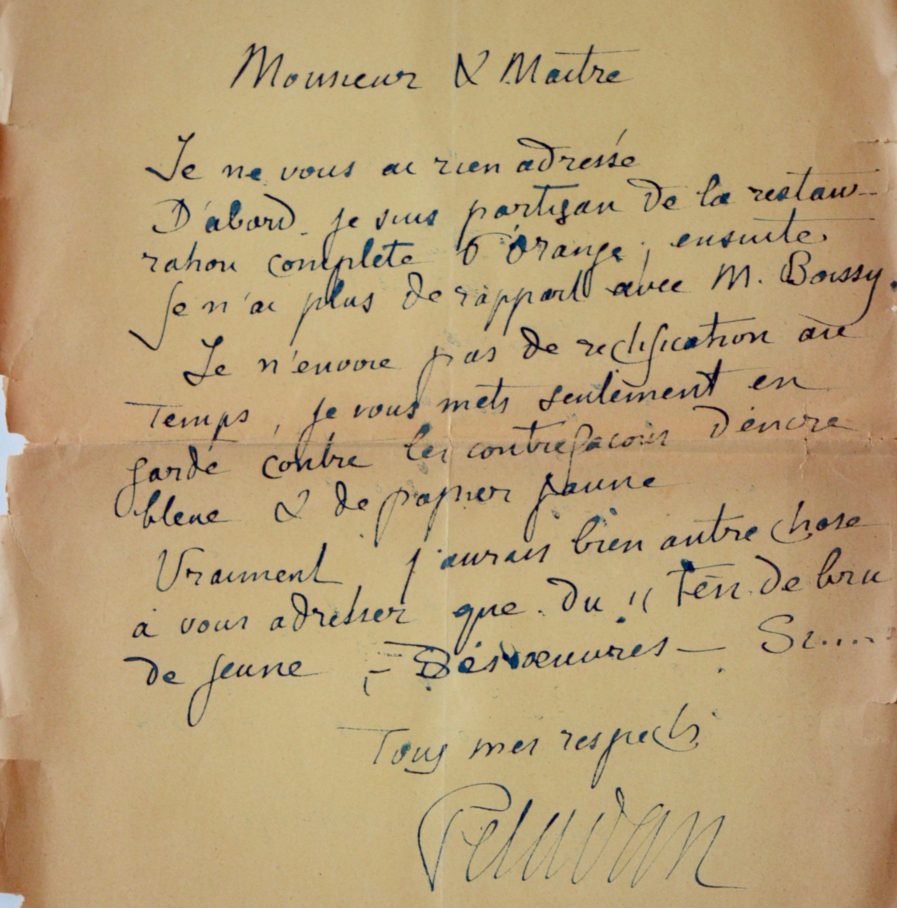 Monsieur & Maitre
Je ne vous ai rien adressé
D'abord, je suis partisan de la restau-
ration complete d'Orange, ensuite
je n'ai plus de rapport avec M. Boissy.
Je n'envoie pas de rectification au
Temps, je vous mets seulement en
garde contre les contrefaçons d'encre
bleue & de papier jaune
Vraiment j'aurais bien autre chose
à vous adresser que du "
de jeune, - Désoeuvrés - Si....
Tous mes respects
Peladan